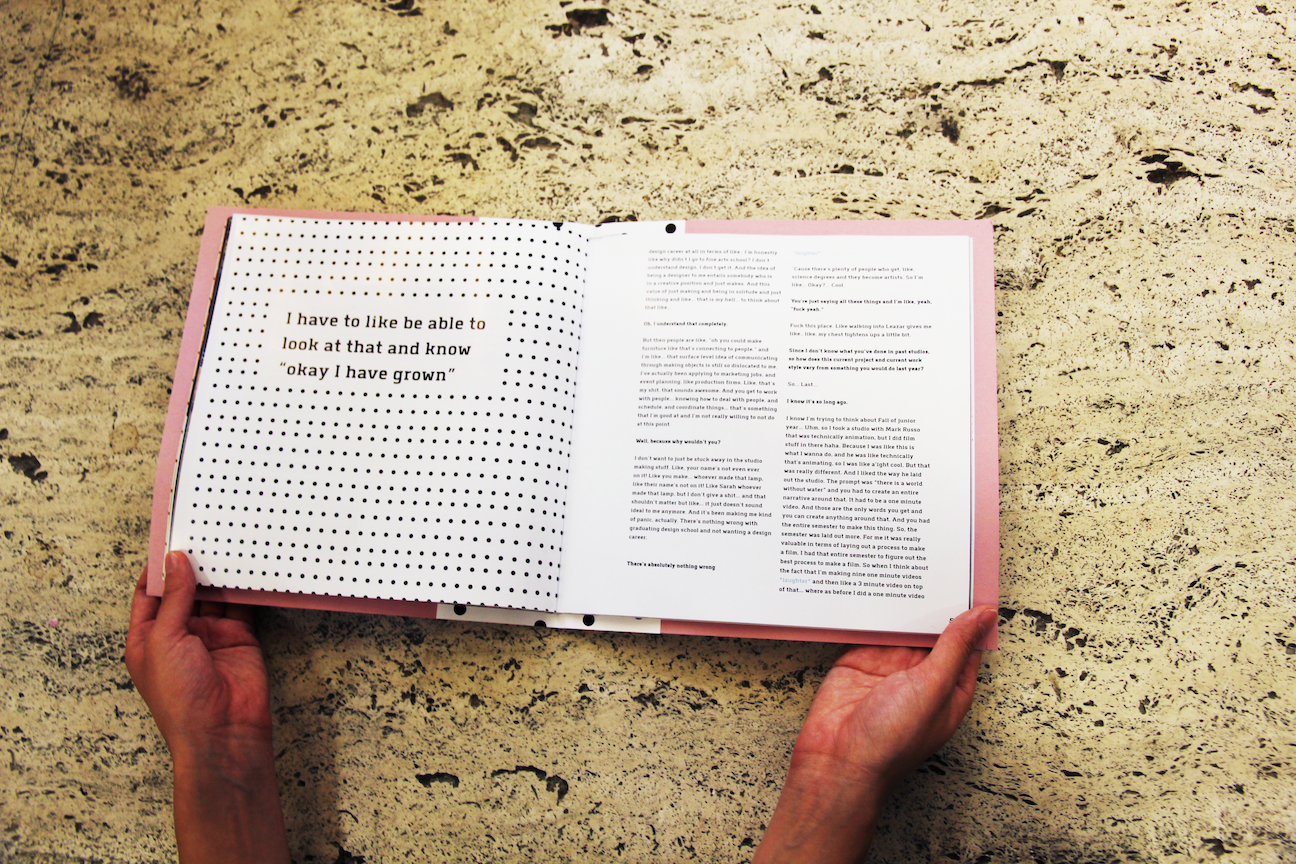 I have to like be able to
look at that and know
"okay I have grown"
design career at all in terms of like.. I'm honestly
like why didn't I go to fine arts school? I don't
understand design; I don't get it. And the idea of
being a designer to me entails somebody who is
in a creative position and just makes. And this
value of just making and being in solitude and just
thinking and like... that is my hell... to think about
that like..
Oh, I understand that completely.
But then people are like, "oh you could make
furniture like that's connecting to people," and
I'm like... that surface level idea of communicating
through making objects is still so dislocated to me.
I've actually been applying to marketing jobs, and
event planning, like production firms. Like, that's
my shit, that sounds awesome. And you get to work
with people... knowing how to deal with people, and
schedule, and coordinate things... that's something
that I'm good at and I'm not really willing to not do
at this point.
Well, because why wouldn't you?
I don't want to just be stuck away in the studio
making stuff. Like, your name's not even ever
on it! Like you make... whoever made that lamp,
like their name's not on it! Like Sarah whoever
made that lamp, but I don't give a shit... and that
shouldn't matter but like... it just doesn't sound
ideal to me anymore. And it's been making me kind
of panic, actually. There's nothing wrong with
graduating design school and not wanting a design
career.
There's absolutely nothing wrong
*laughter*
'Cause there's plenty of people who get, like,
science degrees and they become artists. So I'm
like... Okay?... Cool.
You're just saying all these things and I'm like, yeah,
"fuck yeah."
Fuck this place. Like walking into Leazar gives me
like.. like, my chest tightens ups a little bit.
Since I don't know what you've done in past studios,
so how does this current project and current work
style vary from something you would do last year?
So... Last...
I know it's so long ago.
I know I'm trying to think about Fall of junior
year... Uhm, so I took a studio with Mark Russo
that was technically animation, but I did film
stuff in there haha. Because I was like this is
what I wanna do, and he was like technically
that's animating, so I was like a'ight cool. But that
was really different. And I liked the way he laid
out the studio. The prompt was "there is a world
without water" and you had to create an entire
narrative around that. It had to be a one minute
video. And those are the only words you get and
you can create anything around that. And you had
the entire semester to make this thing. So, the
semester was laid out more. For me it was really
valuable in terms of laying out a process to make
a film, I had that entire semester to figure out the
best process to make a film. So when I think about
the fact that I'm making nine one minute videos
*laughter* and then like a 3 minute video on top
of that... where as before I did a one minute video